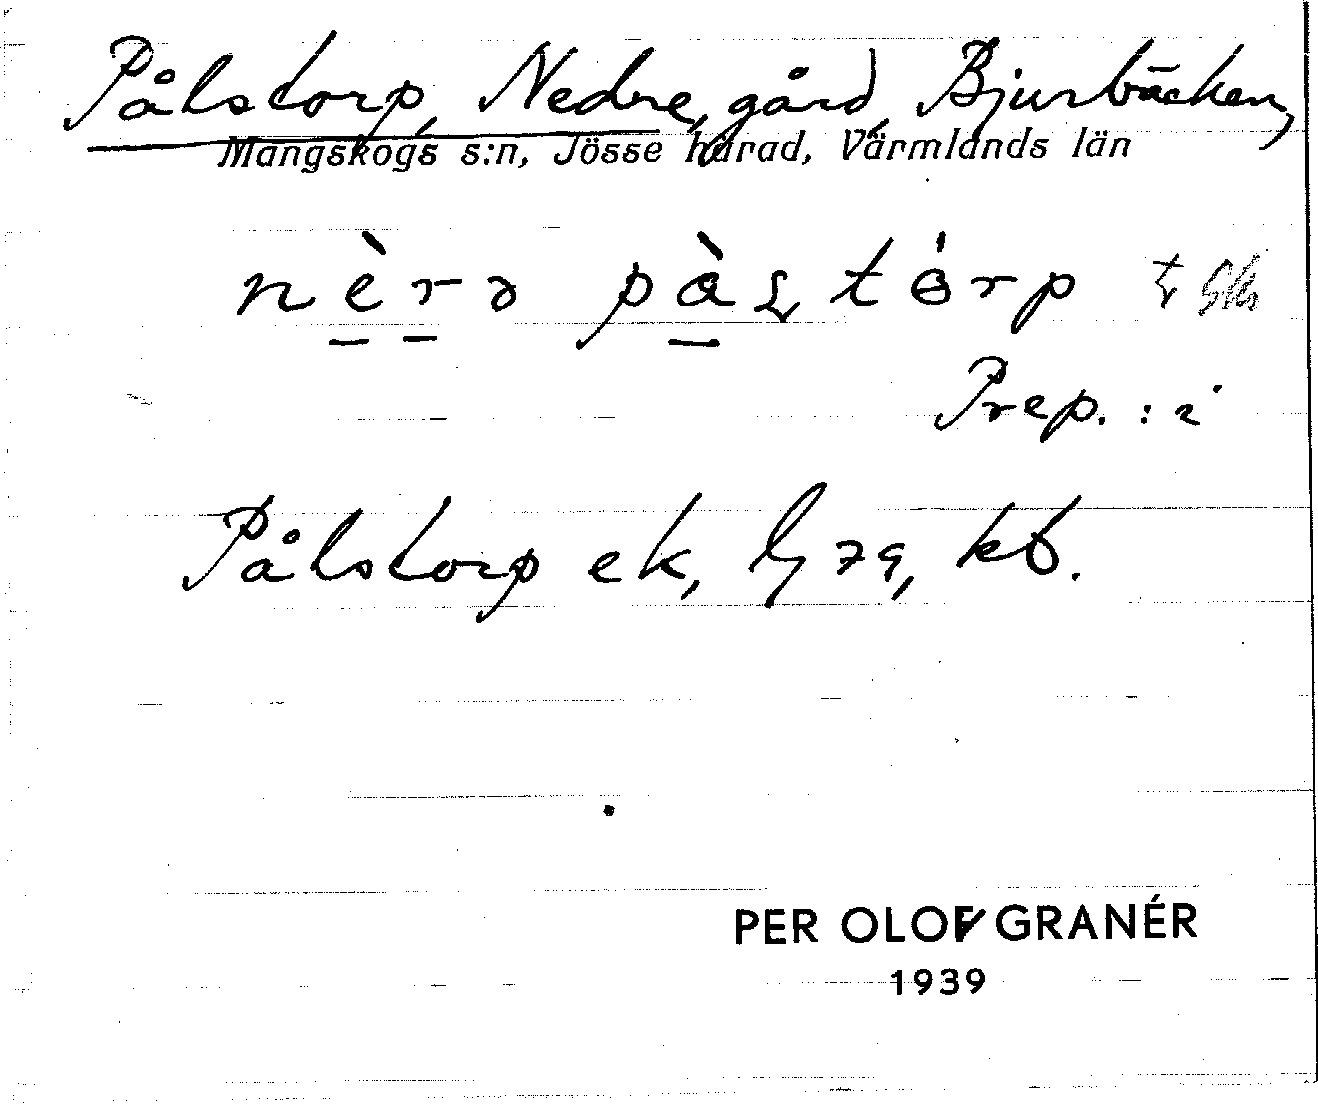 Pålstorp, Nedre, gård, Bjurbäcken,
Mangskogs s:n, Jösse härad, Värmlands län
nèrə pàʂtórp
Prep. : i
Pålstorp ek, kb.
PER OLOF GRANÉR
1939